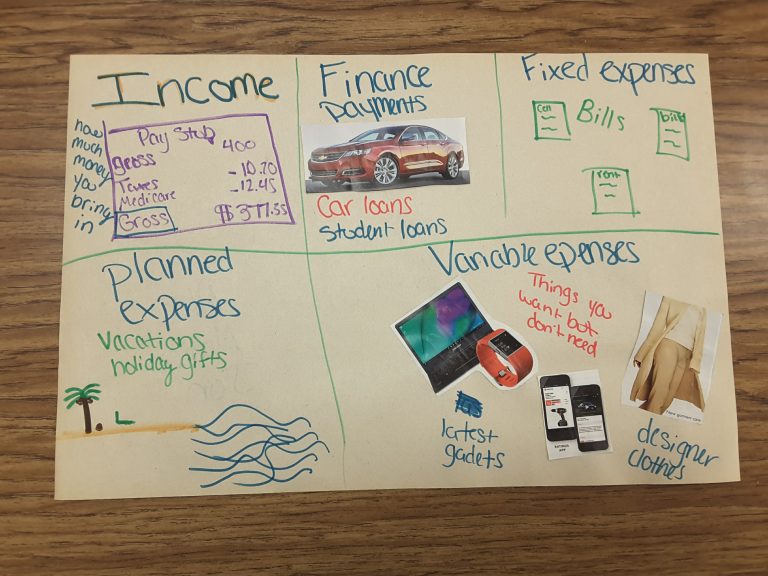 Income
how
much
money
you
bring
in
Pay Stub
gross 400
Taxes - 10.70
Medicare - 12.45
Gross $377.55
Finance
payments
Car loans
Student loans
Fixed expenses
Cell
Bills
bills
rent
Planned
expenses
Vacations
holiday gifts
Variable epenses
Things you
want but
don't need
latest
gadets
designer
clothes